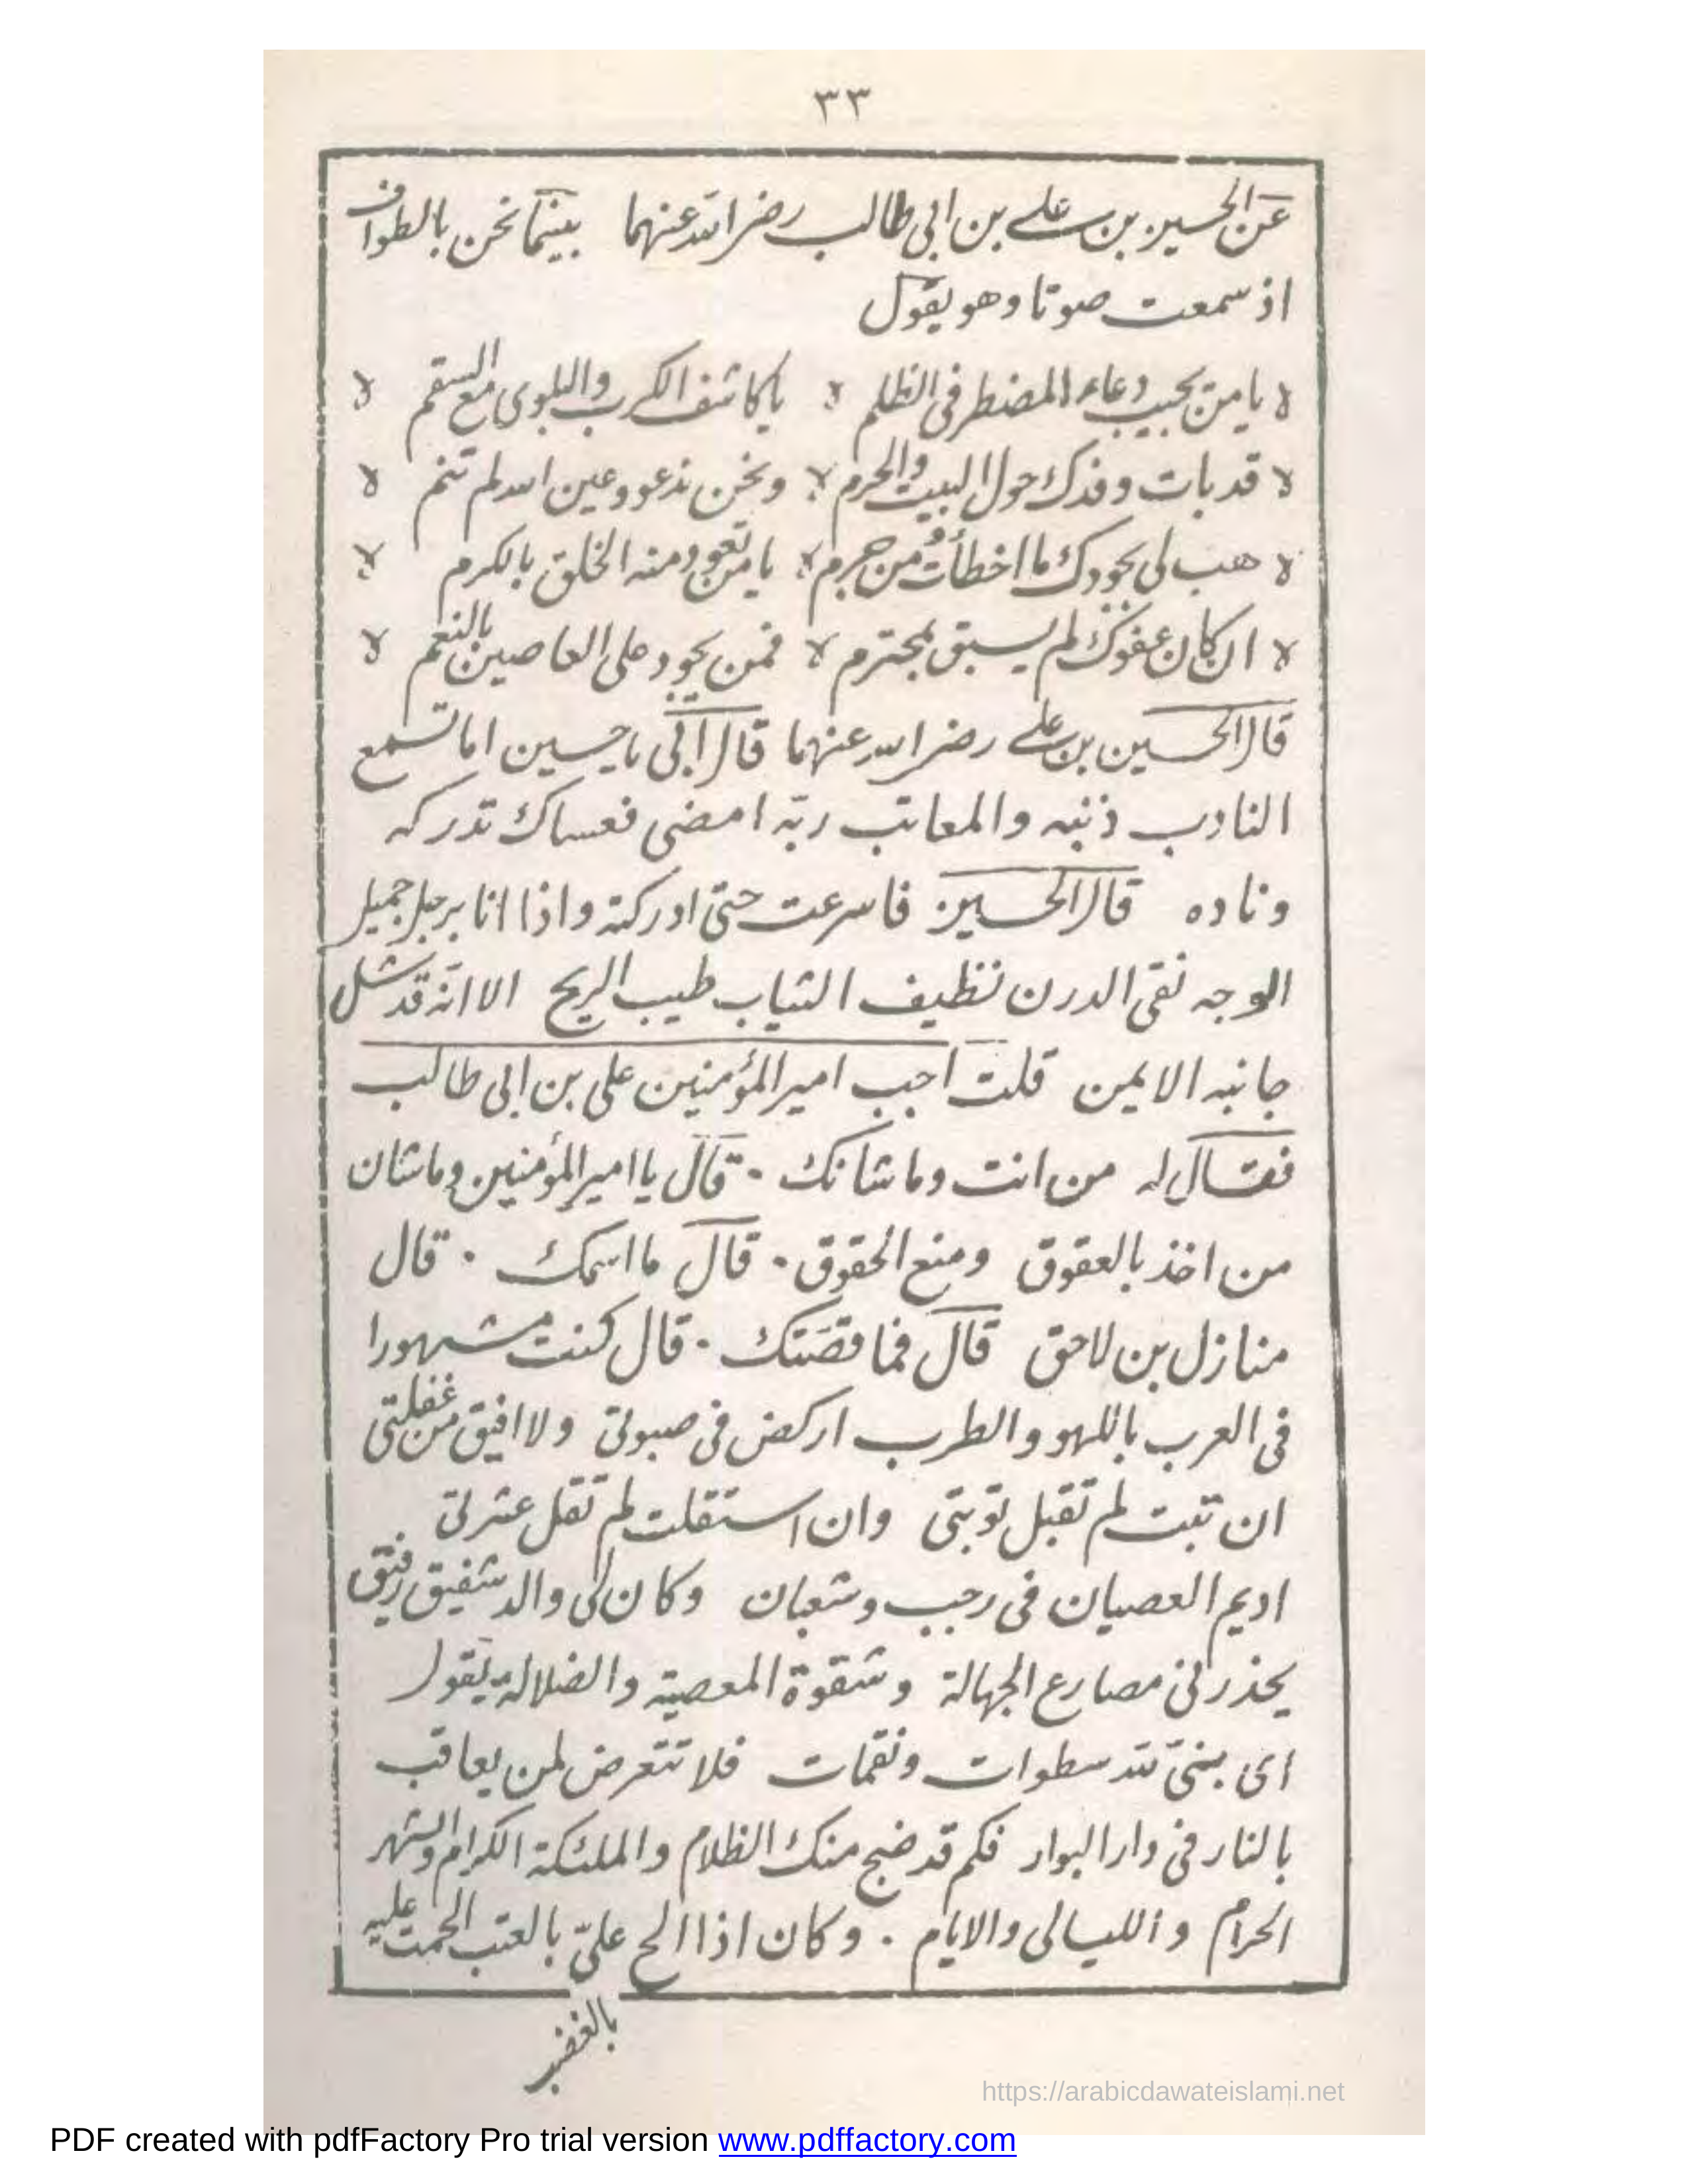 ٣٣
عن الحسين بن علي بن ابي طالب رضي الله عنهما بينما نحن بالطواف
اذ سمعت صوتا وهو يقول
يا من يجيب دعاء المضطر فى الظلم يا كاشف الكرب والبلوى مع السقم
قد بات وفدك حول البيت والحرم ونحن ندعو وعين الله لم تنم
هب لى بجودك ما اخطأت من جرم يا من تعود منه الخلق بالكرم
ان كان عفوك لم يسبق لمجترم فمن يجود على العاصين بالنعم
قال الحسين بن علي رضي الله عنهما قال ابى يا حسين اما تسمع
النادب ذنبه والمعاتب ربّه امضى فعساك تدركه
وناده قال الحسين فاسرعت حتى ادركته واذا انا برجل جميل
الوجه نقى الدرن نظيف الثياب طيب الريح الا انّه قد شل
جانبه الايمن قلت اجب امير المؤمنين على بن ابى طالب
فقال له من انت وما شانك · قال يا امير المؤمنين وما شان
من اخذ بالعقوق ومنع الحقوق · قال ما اسمك · قال
منازل بن لاحق قال فما قصّتك · قال كنت مشهورا
فى العرب باللهو والطرب اركض فى صبوتى ولا افيق من غفلتى
ان تبت لم تقبل توبتى وان استقلت لم تقل عثرتى
اديم العصيان فى رجب وشعبان وكان لى والد شفيق رفيق
يحذرنى مصارع الجهالة وشقوة المعصية والضلالة يقول
اى بنىّ لله سطوات ونقمات فلا تتعرض لمن يعاقب
بالنار فى دار البوار فكم قد ضج منك الظلام والملئكة الكرام والشهر
الحرام والليالى والايام · وكان اذا الح علىّ بالعتب الحمت عليه
بالضرب
https://arabicdawateislami.net
PDF created with pdfFactory Pro trial version www.pdffactory.com